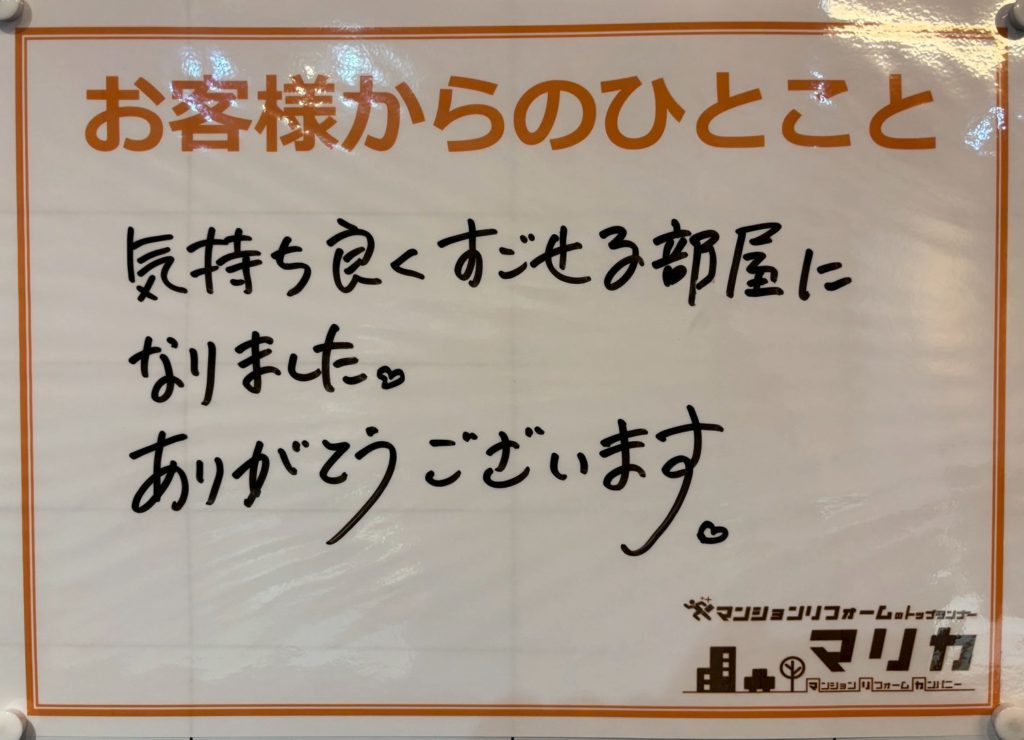 お客様からのひとこと
気持ち良くすごせる部屋に
なりました♡
ありがとうございます♡
マンションリフォームのトップランナー
マリカ
マンションリフォームカンパニー